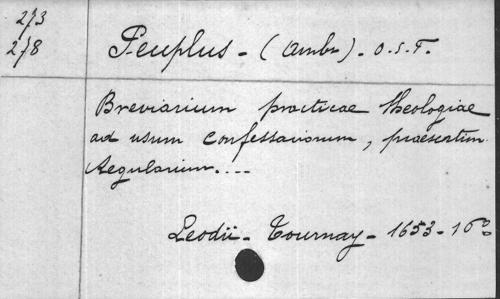 273
278
Peuplus - (Ambr.) - O.S.F.
Breviarium practicae theologiae
ad usum Confessariorum, praesertim
Regularium....
Leodii - Tournay - 1653 - 16º